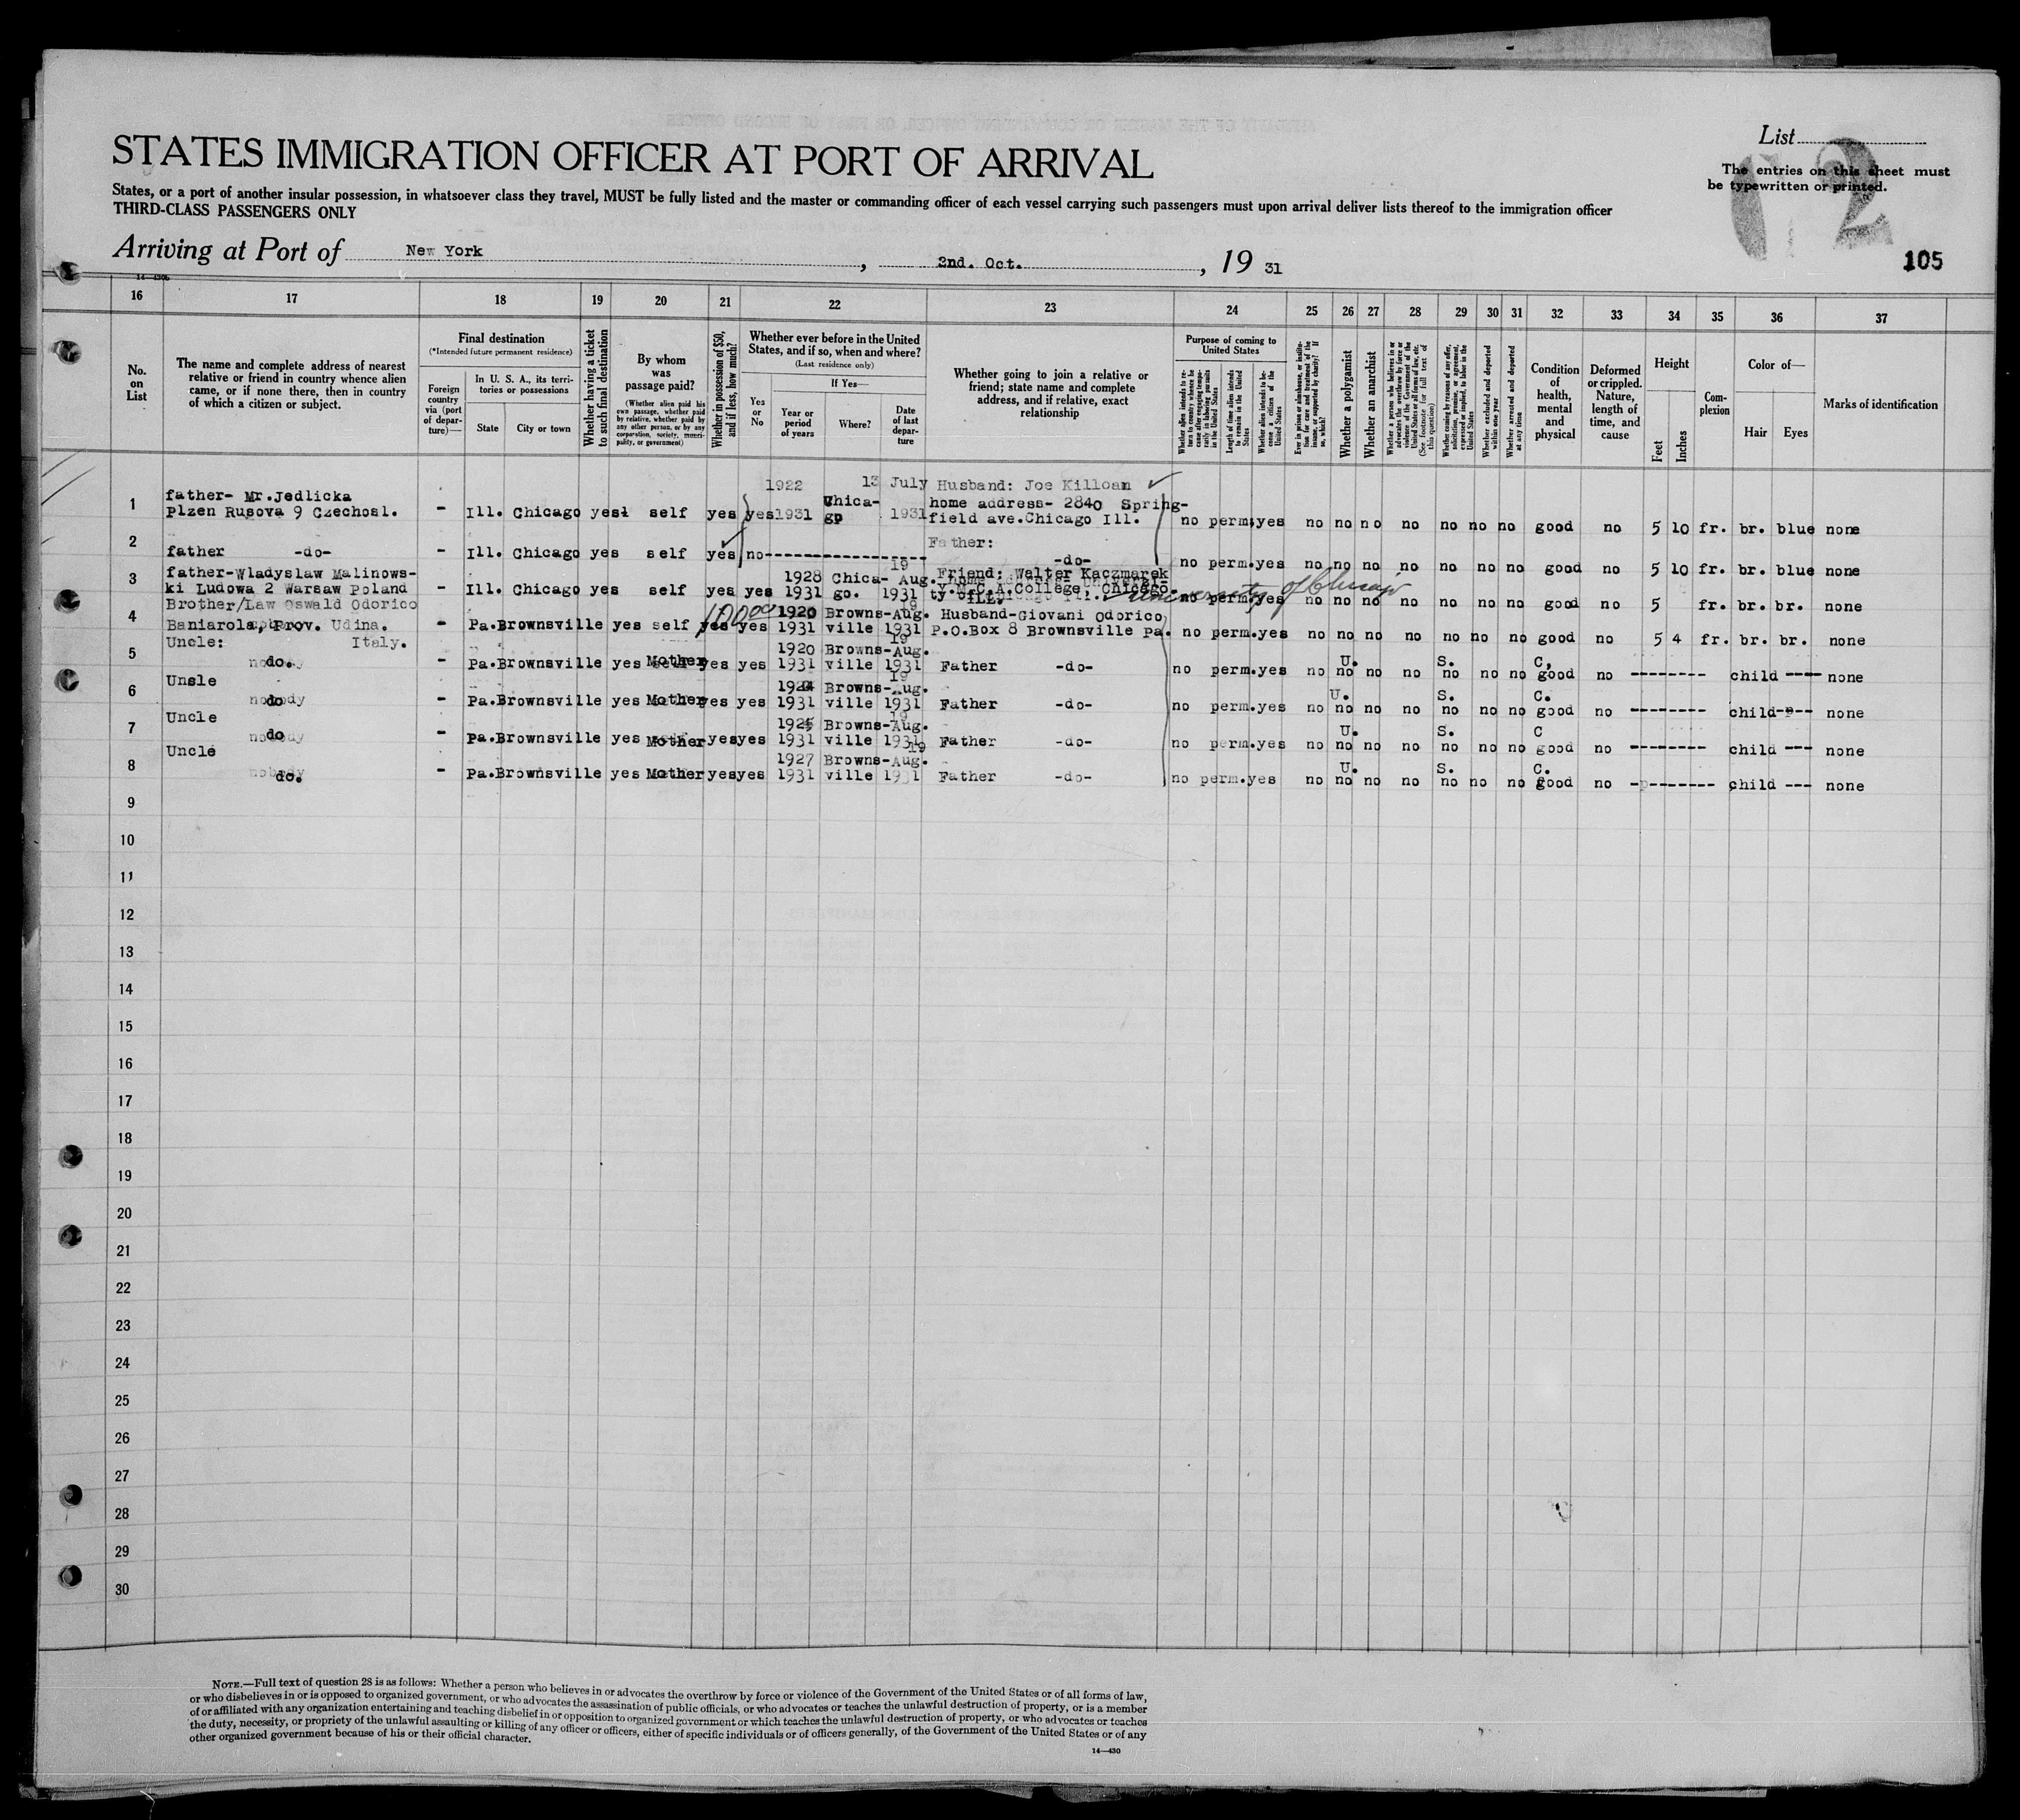 List
STATES IMMIGRATION OFFICER AT PORT OF ARRIVAL
The entries on this sheet must
be typewritten or printed.
States, or a port of another insular possession, in whatsoever class they travel, MUST be fully listed and the master or commanding officer of each vessel carrying such passengers must upon arrival deliver lists thereof to the immigration officer
THIRD-CLASS PASSENGERS ONLY
Arriving at Port of New York, 2nd. Oct., 19 31
105
16 17 18 19 20 21 22 23 24 25 26 27 28 29 30 31 32 33 34 35 36 37
No. on List
The name and complete address of nearest
relative or friend in country whence alien
came, or if none there, then in country
of which a citizen or subject.
Final destination
(*Intended future permanent residence)
Foreign country via (port of departure)—
In U. S. A., its territories or possessions
State City or town
Whether having a ticket to such final destination
By whom was passage paid?
(Whether alien paid his own passage, whether paid by relative, whether paid by any other person, or by any corporation, society, municipality, or government)
Whether in possession of $50, and if less, how much?
Whether ever before in the United
States, and if so, when and where?
(Last residence only)
Yes or No
If Yes—
Year or period of years
Where?
Date of last departure
Whether going to join a relative or
friend; state name and complete
address, and if relative, exact
relationship
Purpose of coming to United States
Whether alien intends to return to country whence he came after engaging temporarily in laboring pursuits in the United States
Length of time alien intends to remain in the United States
Whether alien intends to become a citizen of the United States
Ever in prison or almshouse, or institution for care and treatment of the insane, or supported by charity? If so, which?
Whether a polygamist
Whether an anarchist
(See footnote for full text of this question)
Whether excluded and deported within one year
Whether arrested and deported at any time
Condition of health, mental and physical
Deformed or crippled. Nature, length of time, and cause
Height
Feet Inches
Complexion
Color of—
Hair Eyes
Marks of identification
1922 13 July Husband: Joe Killoan
1 father- Mr.Jedlicka Chica- home address- 2840 Spring-
Plzen Rusova 9 Czechosl. - Ill. Chicago yes self yes yes 1931 go 1931 field ave.Chicago Ill. no perm. yes no no no no no no no good no 5 10 fr. br. blue none
2 Father:
father -do- - Ill. Chicago yes self yes no -do- no perm. yes no no no no no no no good no 5 10 fr. br. blue none
3 father-Wladyslaw Malinows- 1928 Chica- Aug. 19 Friend: Walter Kaczmarek
ki Ludowa 2 Warsaw Poland - Ill. Chicago yes self yes yes 1931 go. 1931 Y.M.C.A.College, Chicago. ILL. University of Chicago no perm. yes no no no no no no no good no 5 fr. br. br. none
4 Brother/Law Oswald Odorico 10000 1920 Browns- Aug. 19 Husband-Giovani Odorico
Baniarola, Prov. Udina. - Pa. Brownsville yes self yes yes 1931 ville 1931 P.O.Box 8 Brownsville Pa. no perm. yes no no no no no no no good no 5 4 fr. br. br. none
Italy.
5 Uncle: 1920 Browns- Aug. 19 U. S. C.
do. - Pa. Brownsville yes Mother yes yes 1931 ville 1931 Father -do- no perm. yes no no no no no no no good no child none
6 Unsle Browns- Aug. 19 U. S. C.
do - Pa. Brownsville yes Mother yes yes 1931 ville 1931 Father -do- no perm. yes no no no no no no no good no child none
7 Uncle 1925 Browns- Aug. 19 U. S. C
do - Pa. Brownsville yes Mother yes yes 1931 ville 1931 Father -do- no perm. yes no no no no no no no good no child none
8 Uncle 1927 Browns- Aug. 19 U. S. C.
do. - Pa. Brownsville yes Mother yes yes 1931 ville 1931 Father -do- no perm. yes no no no no no no no good no child none
9
10
11
12
13
14
15
16
17
18
19
20
21
22
23
24
25
26
27
28
29
30
NOTE.—Full text of question 28 is as follows: Whether a person who believes in or advocates the overthrow by force or violence of the Government of the United States or of all forms of law,
or who disbelieves in or is opposed to organized government, or who advocates the assassination of public officials, or who advocates or teaches the unlawful destruction of property, or is a member
of or affiliated with any organization entertaining and teaching disbelief in or opposition to organized government or which teaches the unlawful destruction of property, or who advocates or teaches
the duty, necessity, or propriety of the unlawful assaulting or killing of any officer or officers, either of specific individuals or of officers generally, of the Government of the United States or of any
other organized government because of his or their official character.
14—430